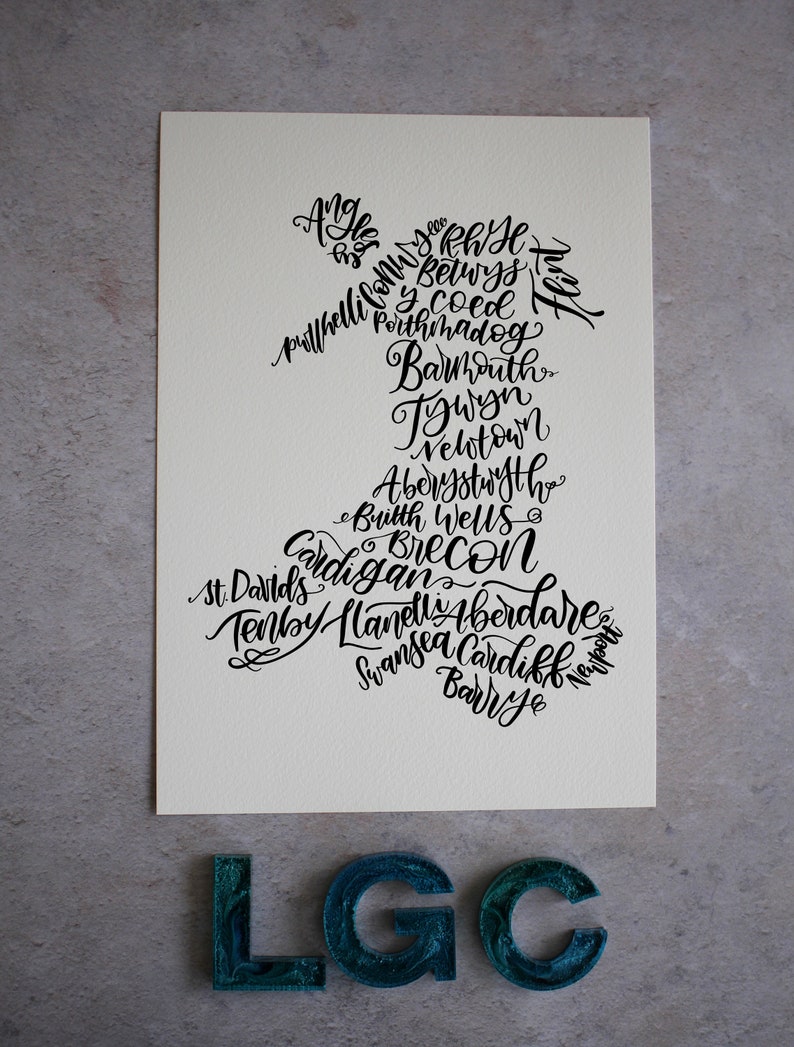 Anglesey
Conwy
Rhyl
Flint
Betwys
y coed
Pwllhelli
Porthmadog
Barmouth
Tywyn
Newtown
Aberystwyth
Builth Wells
Brecon
Cardigan
St. Davids
Tenby
Llanelli
Aberdare
Swansea
Cardiff
Newport
Barry
LGC